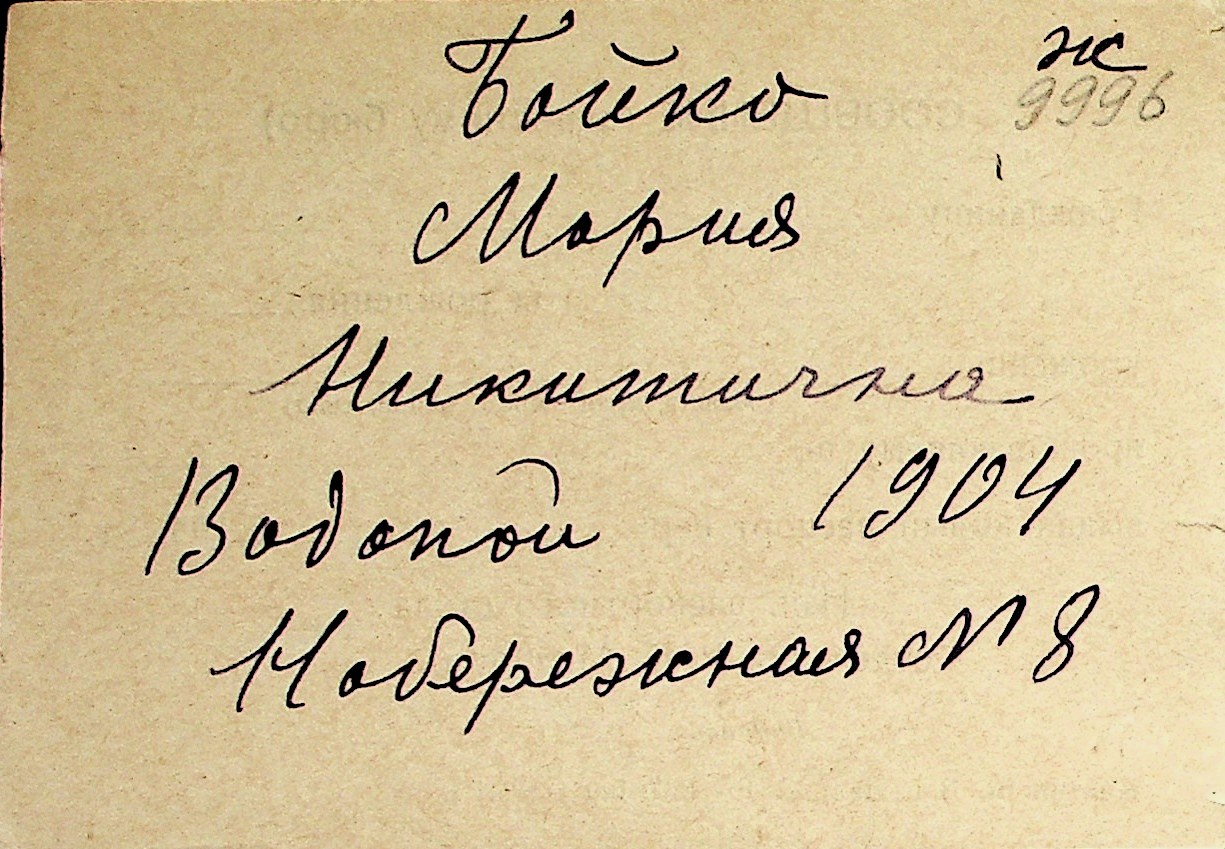 Бойко ж
9996
Мария
Никитична
Водопой 1904
Набережная № 8